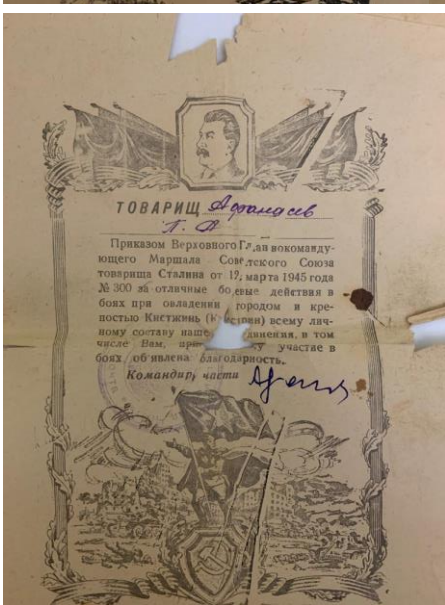 ТОВАРИЩ Афанасьев
П. А
Приказом Верховного Главнокоманду-
ющего Маршала Советского Союза
товарища Сталина от 12 марта 1945 года
№ 300 за отличные боевые действия в
боях при овладении городом и кре-
постью Кистжинь всему лич-
ному составу наше единения, в том
числе Вам, участие в
боях об'явлена благодарность.
Командир части